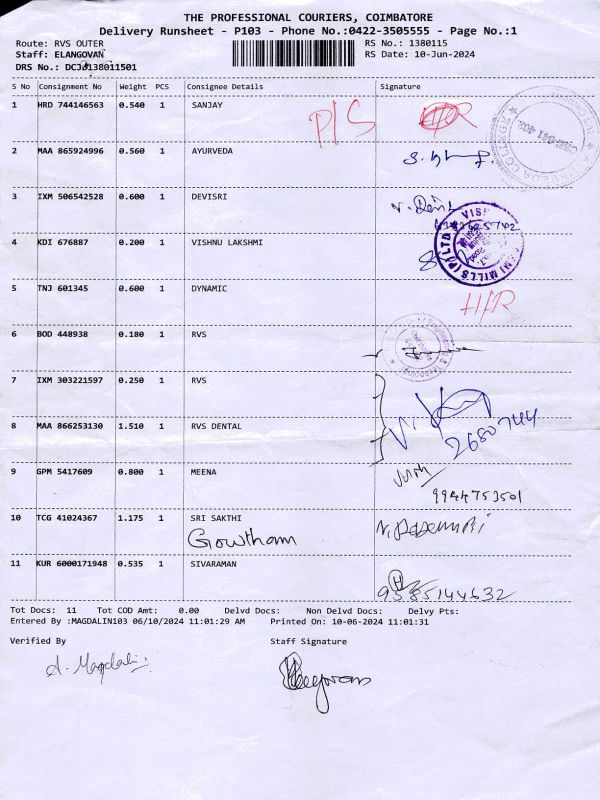 THE PROFESSIONAL COURIERS, COIMBATORE
Delivery Runsheet - P103 - Phone No.:0422-3505555 - Page No.:1
Route: RVS OUTER RS No.: 1380115
Staff: ELANGOVAN RS Date: 10-Jun-2024
DRS No.: DCJU138011501
S No Consignment No Weight PCS Consignee Details Signature
1 HRD 744146563 0.540 1 SANJAY
P/S H/R
2 MAA 865924996 0.560 1 AYURVEDA
3 IXM 506542528 0.600 1 DEVISRI
4 KDI 676887 0.200 1 VISHNU LAKSHMI
5 TNJ 601345 0.600 1 DYNAMIC
H/R
6 BOD 448938 0.180 1 RVS
7 IXM 303221597 0.250 1 RVS
8 MAA 866253130 1.510 1 RVS DENTAL
2680744
9 GPM 5417609 0.800 1 MEENA
9944753501
10 TCG 41024367 1.175 1 SRI SAKTHI
Gowtham
11 KUR 6000171948 0.535 1 SIVARAMAN
9585144632
Tot Docs: 11 Tot COD Amt: 0.00 Delvd Docs: Non Delvd Docs: Delvy Pts:
Entered By :MAGDALIN103 06/10/2024 11:01:29 AM Printed On: 10-06-2024 11:01:31
Verified By Staff Signature